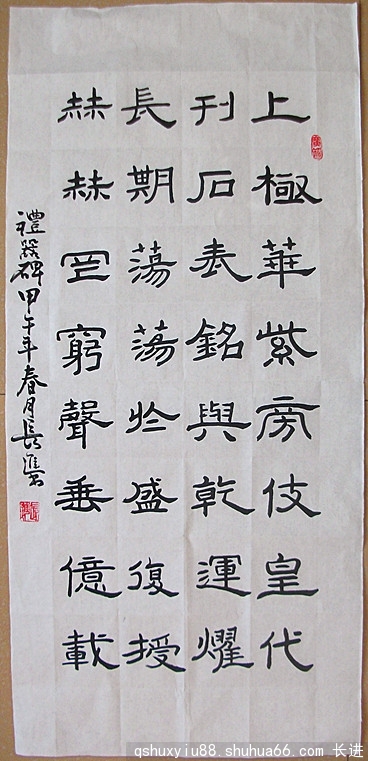 上極華紫旁伎皇代
刊石表銘與乾運燿
長期蕩蕩於盛復授
赫赫罔窮聲垂億載
禮器碑甲午年春月長進
qshuxyiu88.shuhua66.com 长进